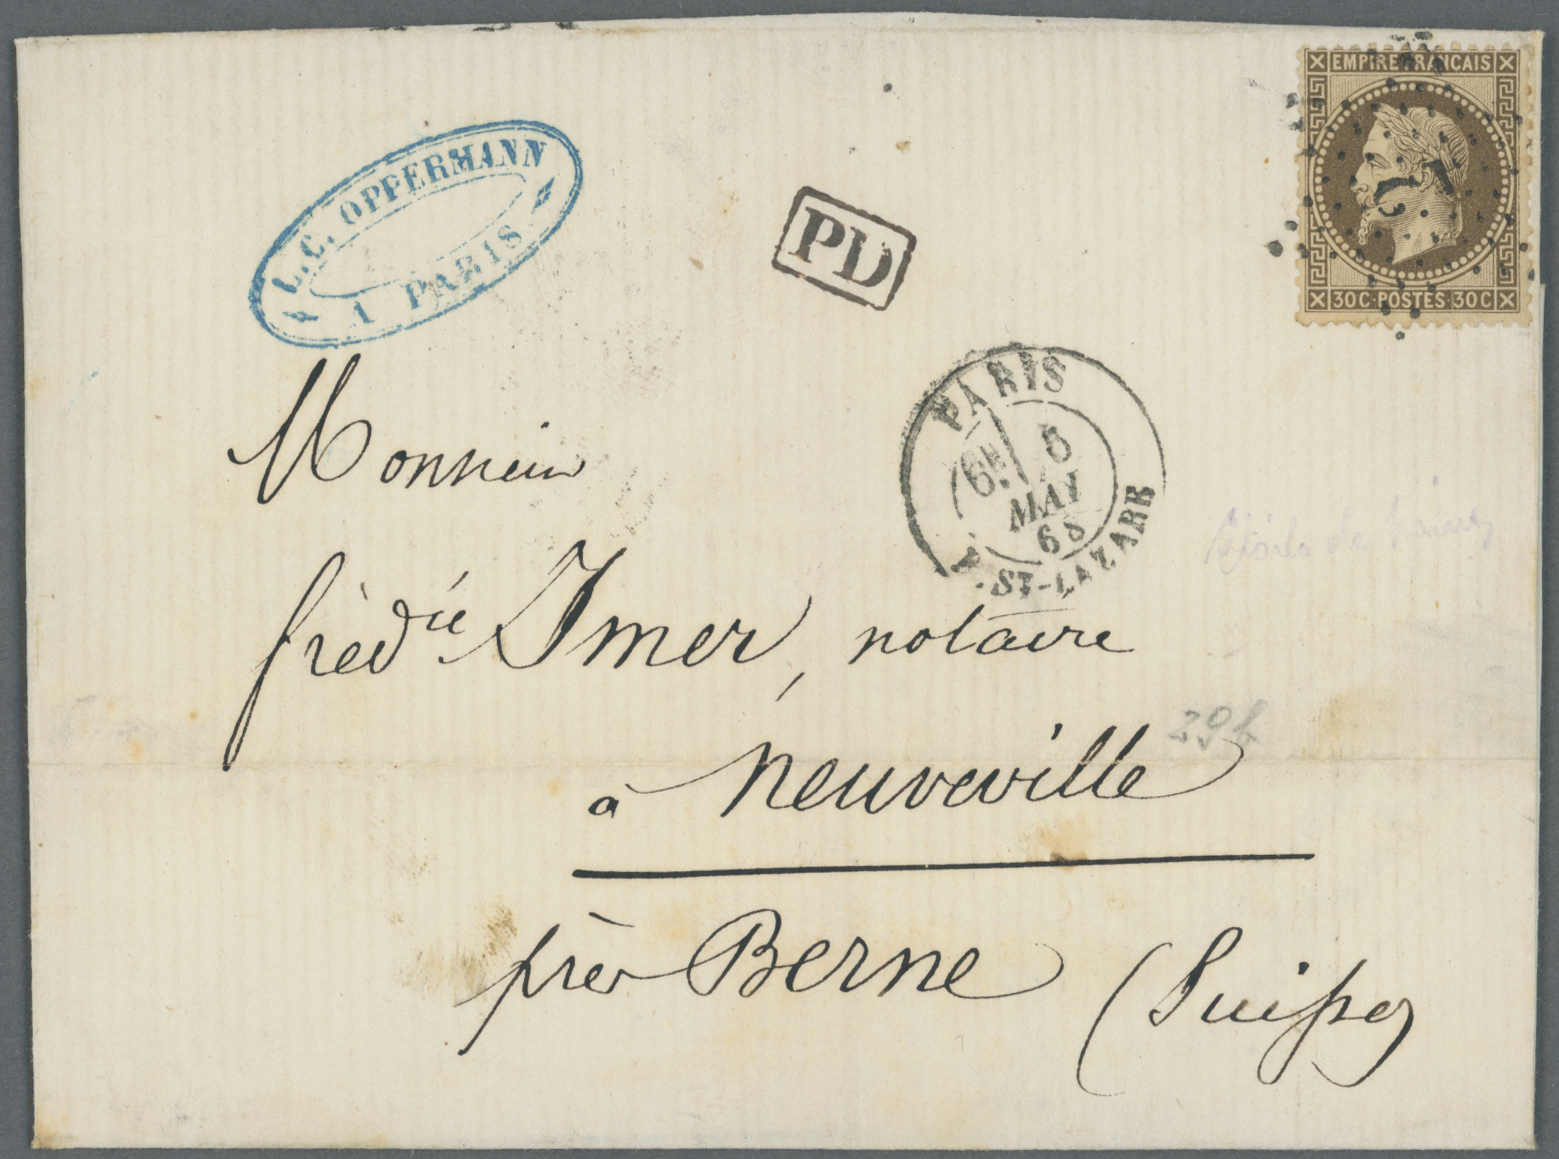 EMPIRE FRANCAIS
30 C·POSTES·30 C
L. C. OPPERMANN
A PARIS
PD
PARIS
6E 5
MAI
68
R. ST-LAZARE
Monsieur
fréd ic Imer, notaire
à Neuveville
près Berne (Suisse)